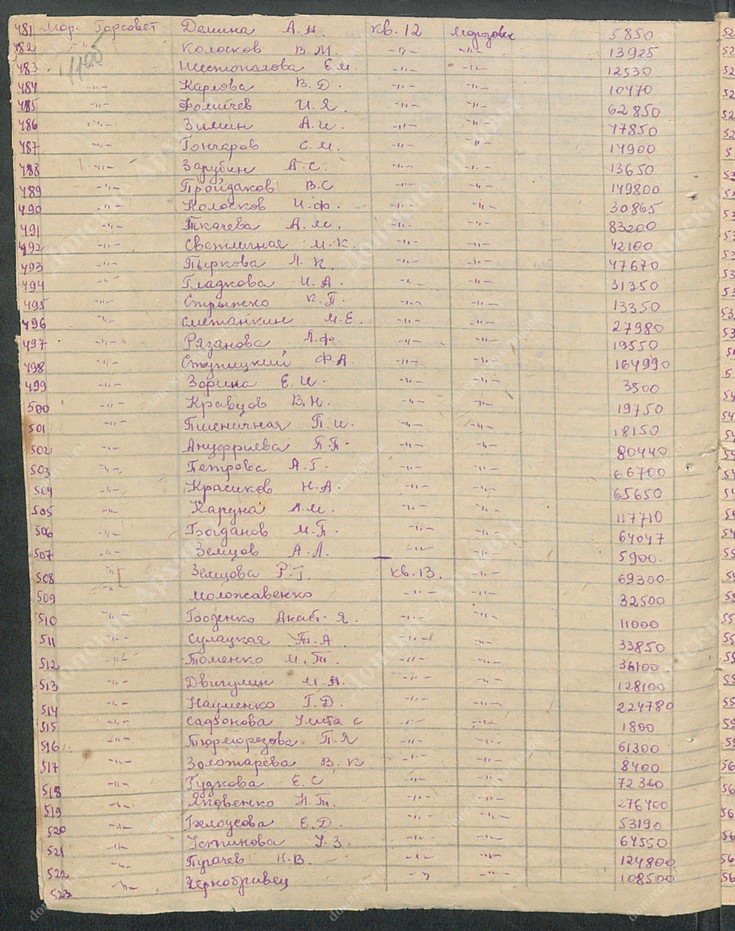 481 Мор. Горсовет Демина А.Н. кв. 12 Морозовск 5850
482 -"- Колосков В.М. -"- -"- 13925
483 1405 Шестопалова Е.М. -"- -"- 12530
484 -"- Карпова В.Д. -"- -"- 10470
485 -"- Фомичев И.Я. -"- -"- 62850
486 -"- Зимин А.И. -"- -"- 47850
487 -"- Гончаров С.М. -"- -"- 14900
488 -"- Зарубин А.С. -"- -"- 13650
489 -"- Пройдаков В.С -"- -"- 149800
490 -"- Колосков И.Ф. -"- -"- 30865
491 -"- Ткачева А.М. -"- -"- 83200
492 -"- Светличная М.К. -"- -"- 42100
493 -"- Пыркова Л.К. -"- -"- 47670
494 -"- Гладкова И.А. -"- -"- 31350
495 -"- К.П. -"- -"- 13350
496 -"- Сметанкин М.Е. -"- -"- 27980
497 -"- Рязанова Л.Ф. -"- -"- 19550
498 -"- Ступицкий Ф.А. -"- -"- 164990
499 -"- Зорина Е.И. -"- -"- 3500
500 -"- Кравцов В.Н. -"- -"- 19750
501 -"- Пшеничная П.И. -"- -"- 18150
502 -"- Ануфриева П.П. -"- -"- 80440
503 -"- Петрова А.Г. -"- -"- 66700
504 -"- Красиков Н.А. -"- -"- 65650
505 -"- Каруна А.М. -"- -"- 117710
506 -"- Богданов М.П. -"- -"- 64047
507 -"- Земцов А.Л. -"- -"- 5900
508 -"- Земцова Р.Г. кв. 13. -"- 69300
509 Моложавенко -"- -"- 32500
510 -"- Гроденко Я. -"- -"- 11000
511 -"- Сулацкая Т.А -"- -"- 33850
512 -"- Томенко М.Т. -"- -"- 36100
513 -"- Двигулин М.А. -"- -"- 128100
514 -"- Науменко Г.Д. -"- -"- 224780
515 -"- Сафонова Улита С -"- -"- 1800
516 -"- Тюрморезова П.Я -"- -"- 61300
517 -"- Золотарева В.К -"- -"- 8400
518 -"- Гудкова Е.С -"- -"- 72360
519 -"- Яковенко Н.Т. -"- -"- 276400
520 -"- Белоусова Е.Д. -"- -"- 53190
521 -"- Устинова У.З. -"- -"- 64550
522 -"- Пугачев Н.В. -"- -"- 124800
523 -"- Чернобривец -"- -"- 108500